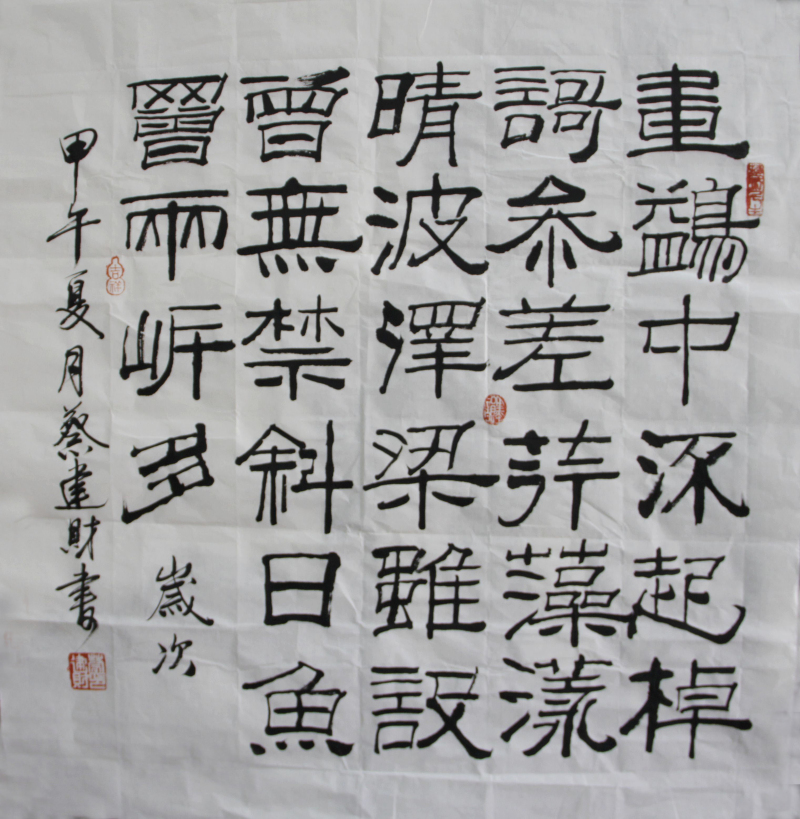 畫鷁中流起棹
謌參差荇藻漾
晴波澤梁雖設
曾無禁斜日魚
罾兩岸多 歲次
甲午夏月蔡建財書